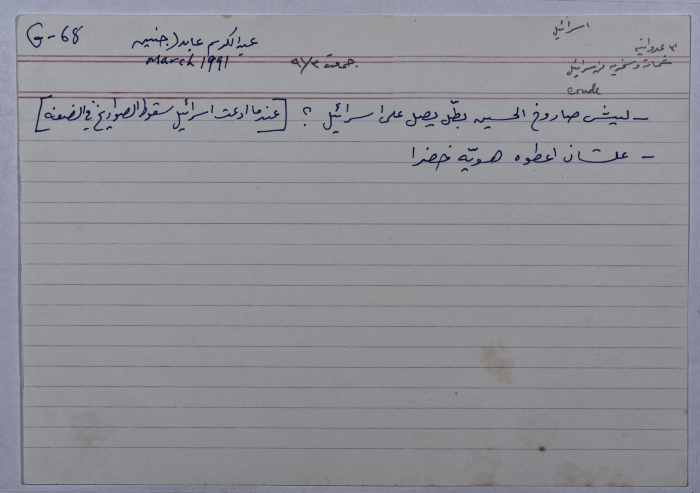 G-68
عبد الكريم عابد (جنين
March 1991
جمعت ٩/٣
اسرائيل
٣ عدوانية
من اسرائيل
crude
- ليش صاروخ الحسين بطّل يصل على اسرائيل ؟ [عندما ادعت اسرائيل سقوط الصواريخ في الضفة]
- علشان اعطوه هويّه خضرا